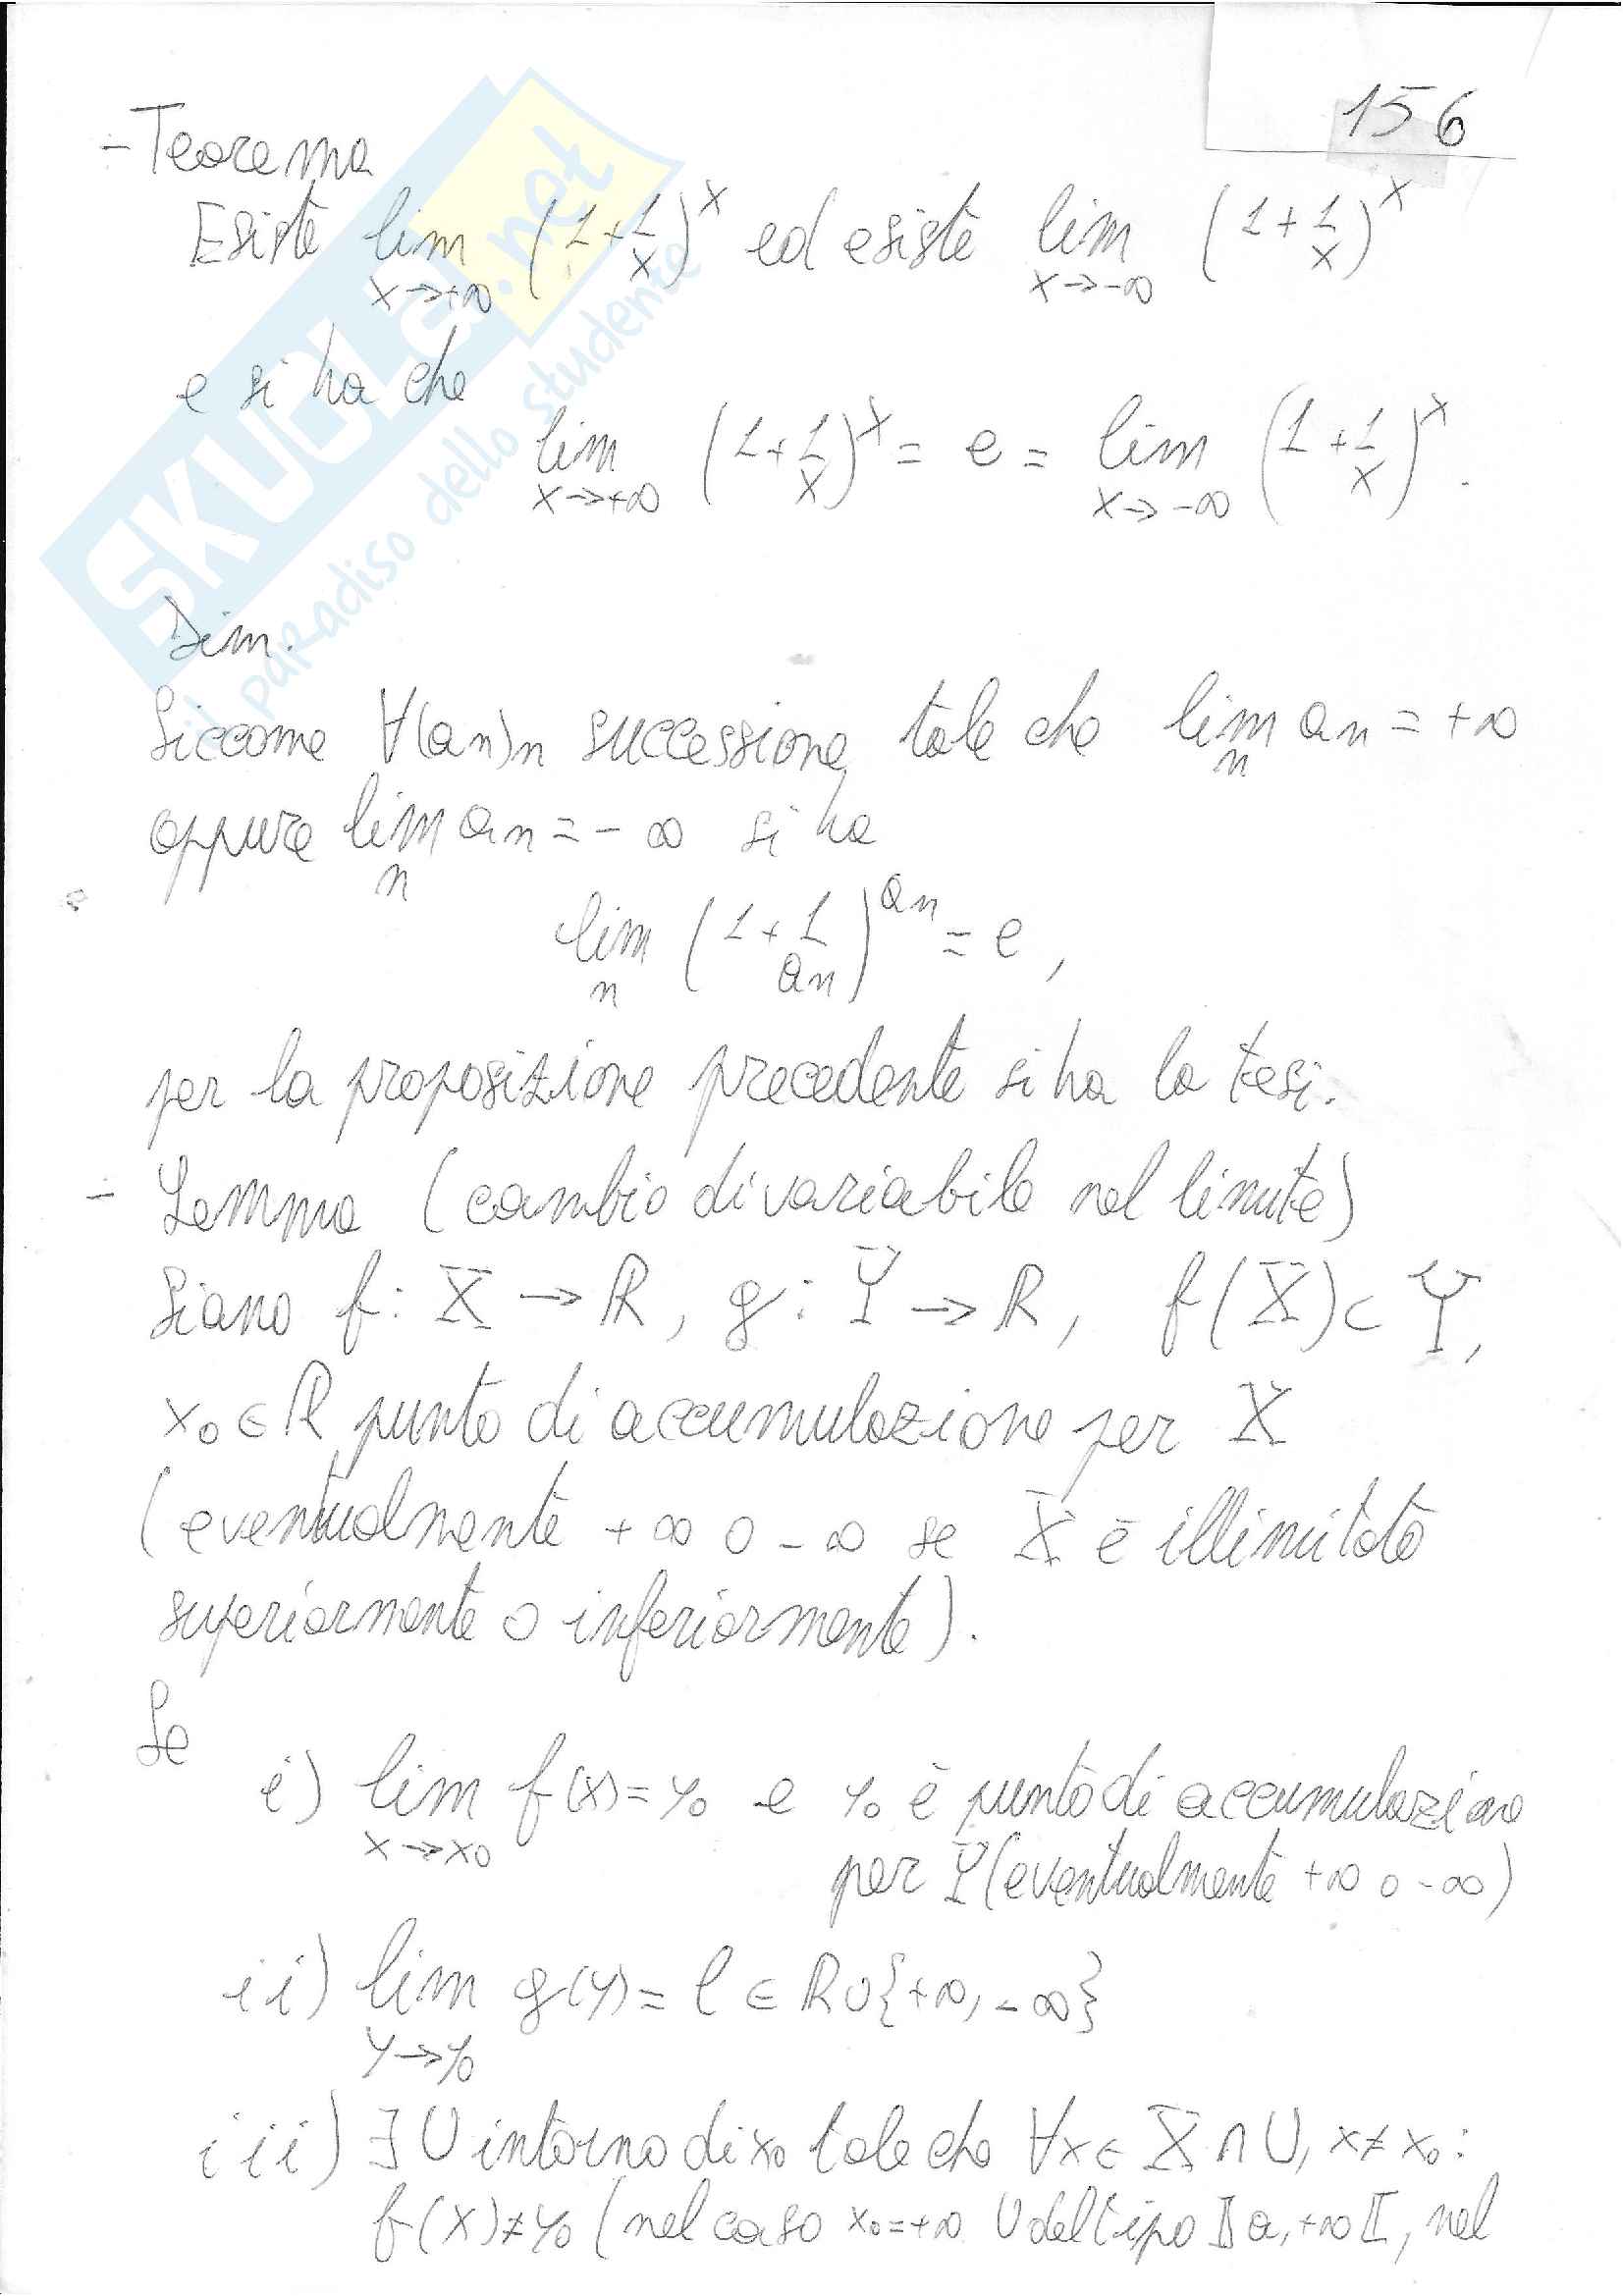 156
- Teorema
Esiste lim x→+∞ (1+1/x)^x ed esiste lim x→-∞ (1+1/x)^x
e si ha che
lim x→+∞ (1+1/x)^x = e = lim x→-∞ (1+1/x)^x.
Dim.
Siccome ∀(an)n successione tale che lim n an = +∞
oppure lim n an = -∞ si ha
lim n (1+1/an)^an = e,
per la proposizione precedente si ha la tesi.
- Lemma (cambio di variabile nel limite)
Siano f: X → R, g: Y → R, f(X) ⊂ Y,
x0 ∈ R punto di accumulazione per X
(eventualmente +∞ o -∞ se X è illimitato
superiormente o inferiormente).
Se
i) lim x→x0 f(x) = y0 e y0 è punto di accumulazione
per Y (eventualmente +∞ o -∞)
ii) lim y→y0 g(y) = l ∈ R ∪ {+∞, -∞}
iii) ∃ U intorno di x0 tale che ∀x ∈ X ∩ U, x ≠ x0:
f(x) ≠ y0 (nel caso x0 = +∞ U del tipo ]a, +∞[, nel
SKUOLa.net
il paradiso dello studente